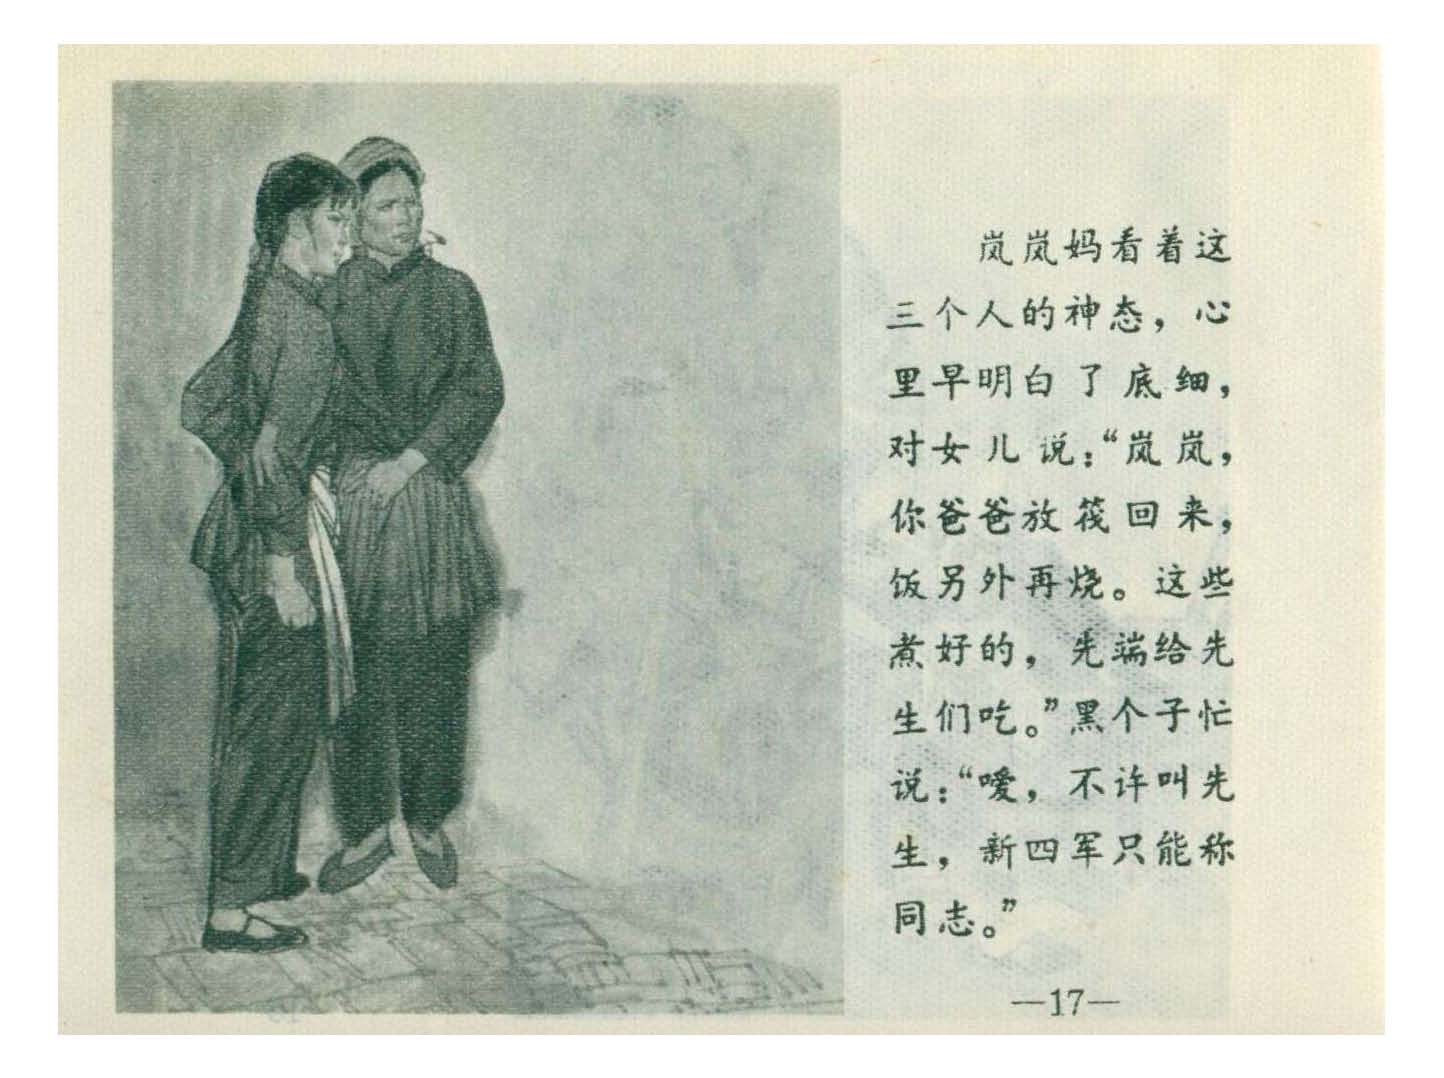 岚岚妈看着这
三个人的神态，心
里早明白了底细，
对女儿说：“岚岚，
你爸爸放筏回来，
饭另外再烧。这些
煮好的，先端给先
生们吃。”黑个子忙
说：“嗳，不许叫先
生，新四军只能称
同志。”
—17—